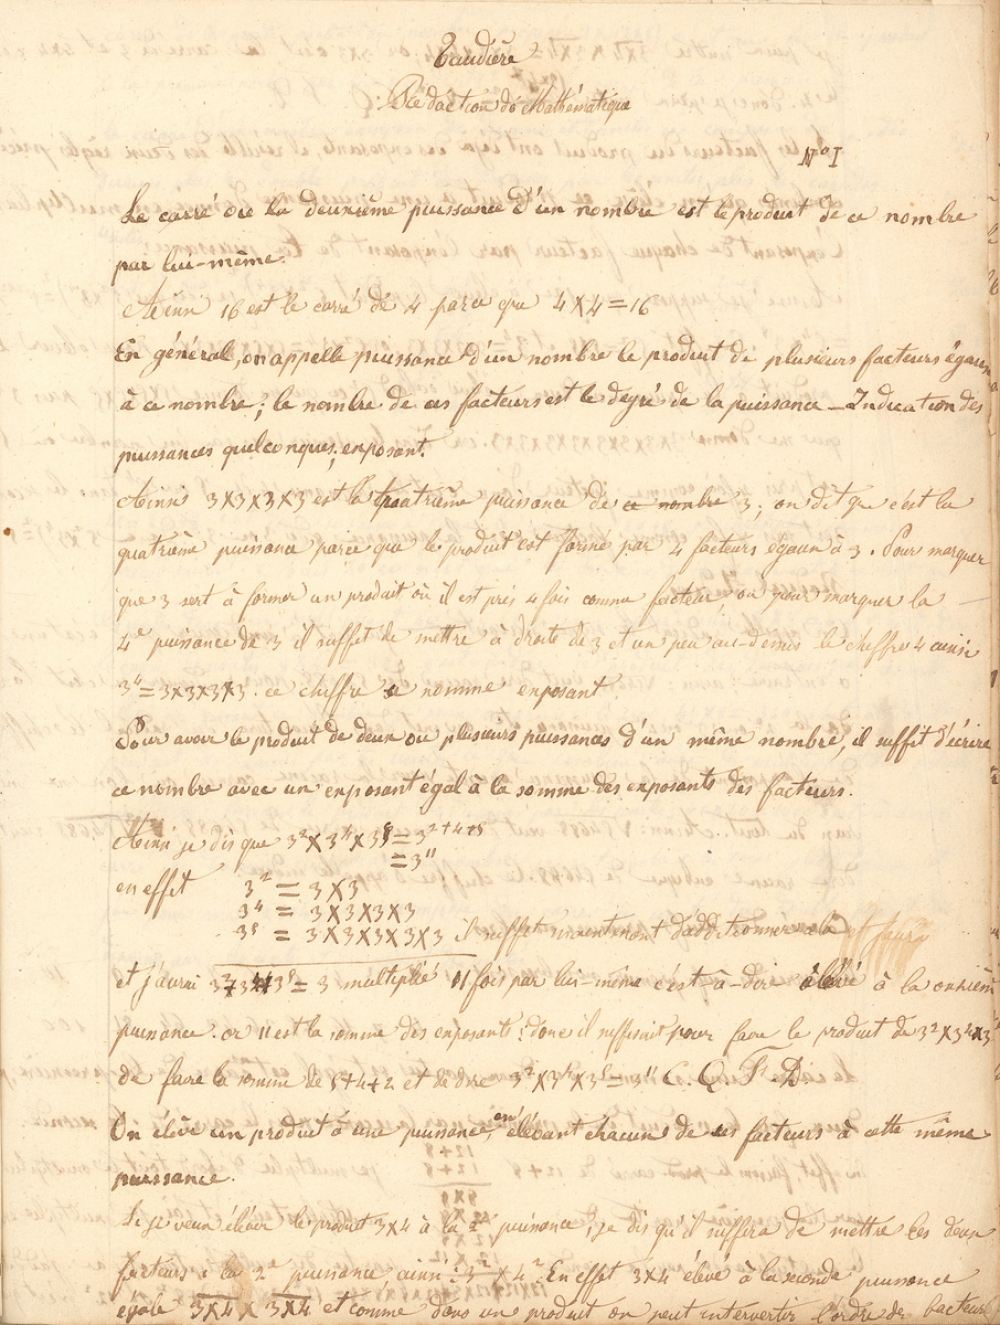 Taudière
Rédaction de Mathématique
N° I
Le carré ou la deuxième puissance d'un nombre est le produit de ce nombre
par lui-même.
Ainsi 16 est le carré de 4 parce que 4 X 4 = 16
En général, on appelle puissance d'un nombre le produit de plusieurs facteurs égaux
à ce nombre; le nombre de ces facteurs est le degré de la puissance – Indication des
puissances quelconques; exposant.
Ainsi 3X3X3X3 est la quatrième puissance de ce nombre 3; on dit que c'est la
quatrième puissance parce que le produit est formé par 4 facteurs égaux à 3. Pour marquer
que 3 sert à former un produit où il est pris 4 fois comme facteur, ou pour marquer la –
4e puissance de 3 il suffit de mettre à droite de 3 et un peu au-dessus le chiffre 4 ainsi
3⁴ = 3X3X3X3. ce chiffre se nomme exposant
Pour avoir le produit de deux ou plusieurs puissances d'un même nombre, il suffit d'écrire
ce nombre avec un exposant égal à la somme des exposants des facteurs.
Ainsi je dis que 3² X 3⁴ X 3⁵ = 3²⁺⁴⁺⁵
= 3¹¹
en effet 3² = 3 X 3
3⁴ = 3X3X3X3
3⁵ = 3X3X3X3X3 il suffit maintenant d'additionner
et j'aurai 3²X3⁴X3⁵ = 3 multiplié 11 fois par lui-même c'est-à-dire élevé à la onzième
puissance. or 11 est la somme des exposants: donc il suffisait pour faire le produit de 3² X 3⁴ X 3⁵
de faire la somme de 5+4+2 et de dire 3² X 3⁴ X 3⁵ = 3¹¹ C. Q. F. D
On élève un produit à une puissance, en élevant chacun de ses facteurs à cette même
puissance.
Si je veux élever le produit 3X4 à la 2e puissance, je dis qu'il suffira de mettre les deux
facteurs à la 2e puissance, ainsi: 3² X 4². En effet 3X4 élevé à la seconde puissance
égale 3X4 X 3X4 et comme dans un produit on peut intervertir l'ordre des facteurs